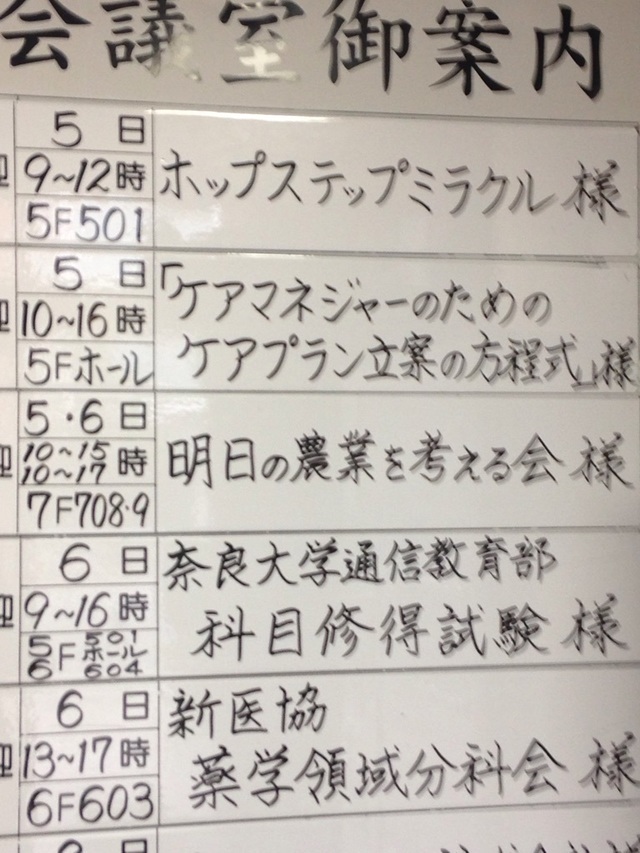 会議室御案内
5 日
9~12時
5F501
ホップステップミラクル 様
5 日
10~16時
5Fホール
「ケアマネジャーのための
ケアプラン立案の方程式」様
5・6 日
10~15
10~17 時
7F708・9
明日の農業を考える会 様
6 日
9~16時
5 501
F ホール
6 604
奈良大学通信教育部
科目修得試験 様
6 日
13~17時
6F603
新医協
薬学領域分科会 様